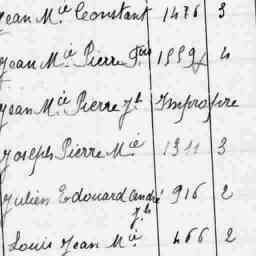 Jean M.ie Constant 1476 3
Jean M.ie Pierre F.ois 1559 4
Jean M.ie Pierre J.h Impropre
Joseph Pierre M.ie 1311 3
Julien Edouard André 916 2
J.h
Louis Jean M.ie 466 2